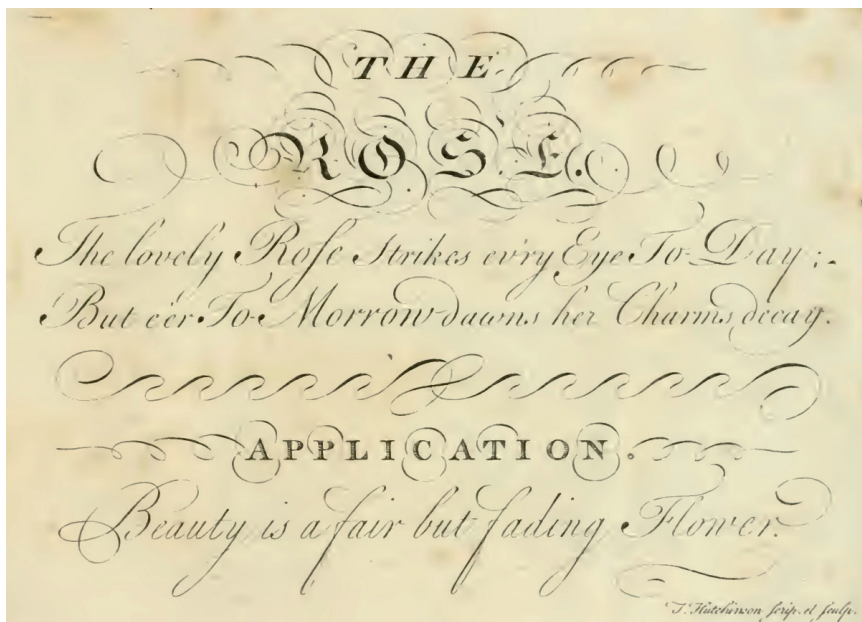 THE
ROSE.
The lovely Roſe Strikes ev'ry Eye To-Day:
But e'er To-Morrow dawns her Charms decay.
APPLICATION.
Beauty is a fair but fading Flower.
T. Hutchinson ſcrip. et ſculp.